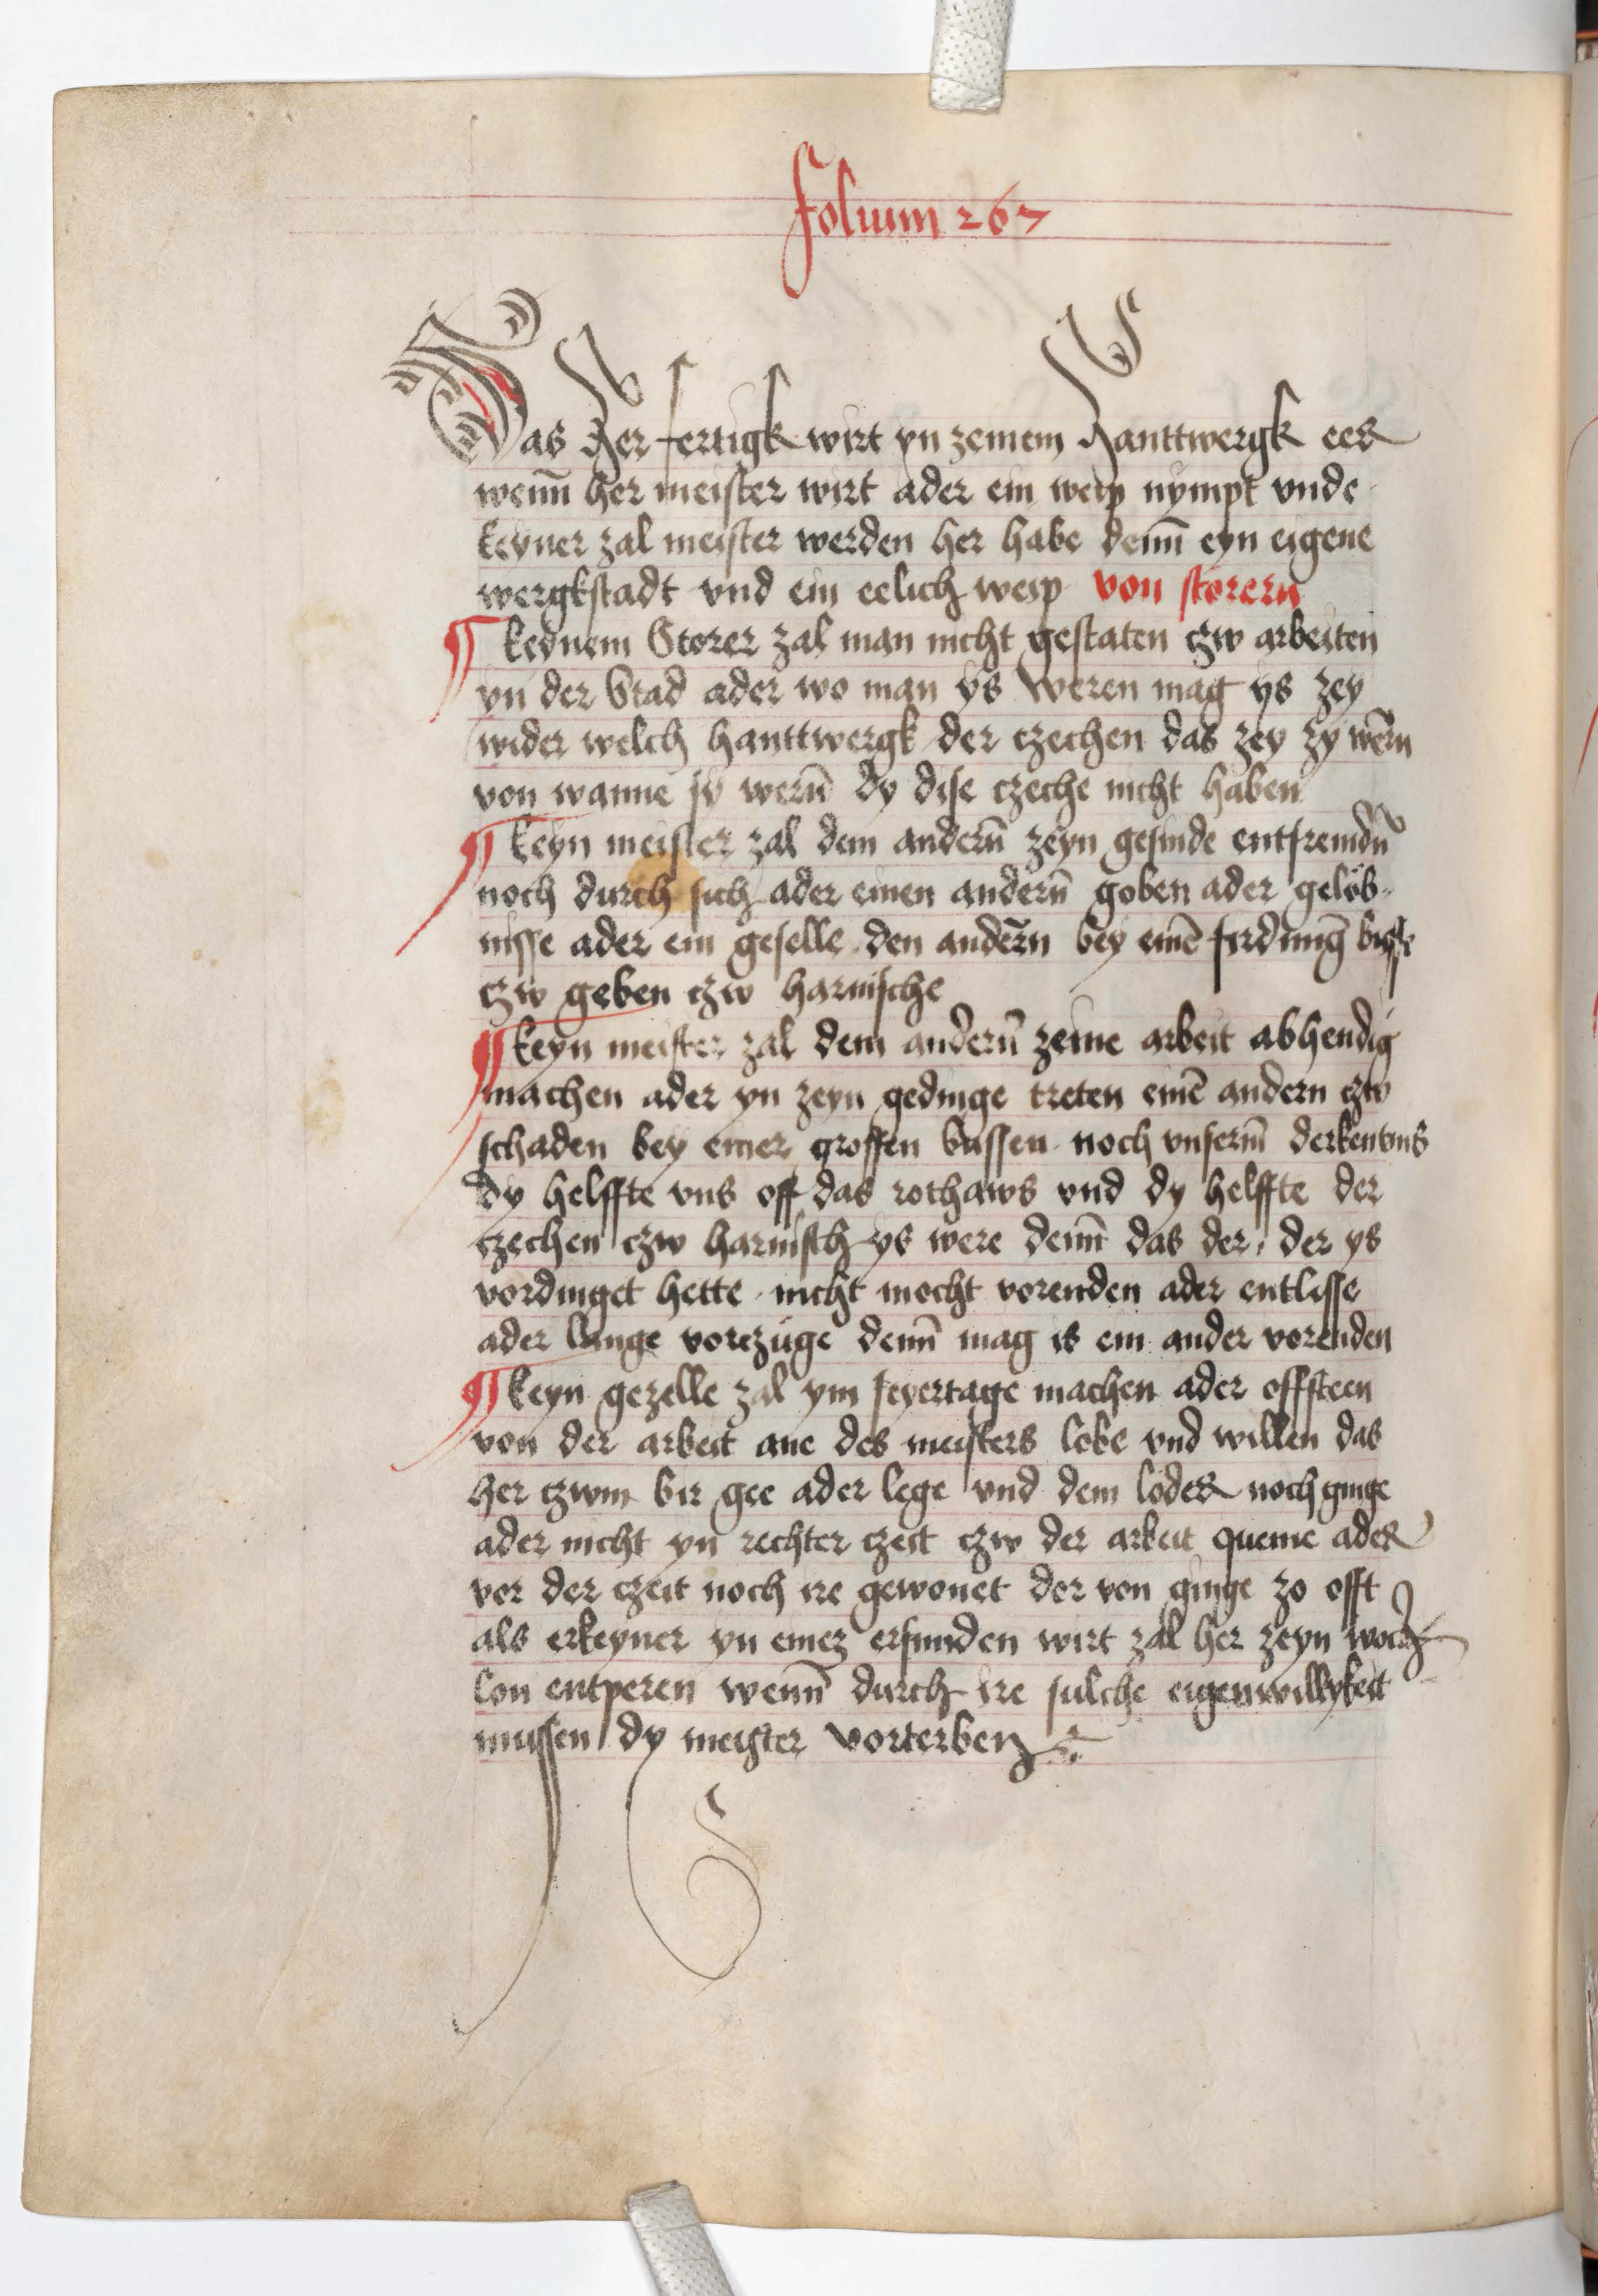 folium 267
Das her fertigk wirt yn zeinem hanttwergk eer
wenn̄ her meister wirt ader ein weip nympt vnde
keyner zal meister werden her habe denn̄ eyn eigene
wergkstadt vnd ein eelich weip von storern
¶ keynem Storer zal man nicht gestaten czw arbeiten
yn der Stad ader wo man ys weren mag ys zey
wider welch hanttwergk der czechen das zey zy wern̄
von wanne sy wern̄ dy dise czeche nicht haben
¶ keyn meister zal dem andern̄ zeyn gesinde entfremdn̄
noch durch sich ader einen andern̄ goben ader gelob-
nisse ader ein geselle den andern̄ bey einē firdunḡ
czw geben czw harnische
¶ keyn meister zal dem andern̄ zeine arbeit abhendig
machen ader yn zeyn gedinge treten einē andern czw
schaden bey einer grossen bussen noch vnserm̄ derkentnis
dy helffte vns off das rothaws vnd dy helffte der
czechen czw harnisch ys were denn̄ das der, der ys
vordinget hette nicht mocht vorenden ader entlisse
ader lange vorczuge denn̄ mag is ein ander vorenden
¶ keyn gezelle zal ym feyertage machen ader offsteen
von der arbeit ane des meisters lobe vnd willen das
her czwm bir gee ader lege vnd dem loder noch ginge
ader nicht yn rechter czeit czw der arbeit queme ader
vor der czeit noch ire gewonet der von ginge zo offt
als erkeyner yn einez erfunden wirt zal her zeyn woch
lon entperen wenn̄ durch ire sulche eigenwillykeit
mussen dy meister vorterben